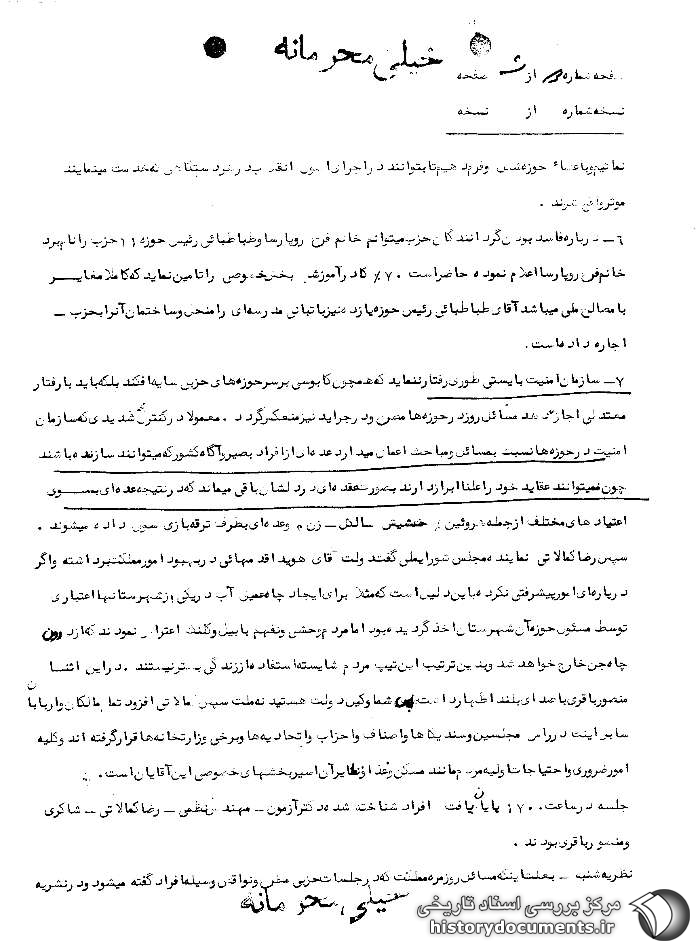 خیلی محرمانه
صفحه شماره از صفحه
نسخه شماره از نسخه
نمائیم و باعضاء حوزه‌ها فرصت دهیم تا بتوانند در اجرای اصول انقلاب در خرد سیتکلای نه خدمت مینمایند
موثر واقع شوند .
۶ـ درباره فاسد بودن گردانندگان حزب میتوانم خانم فرخ روپارسا و طباطبائی رئیس حوزه ۱۱ حزب را نام برد
خانم فرخ روپارسا اعلام نموده حاضر است ۷۰٪ کادر آموزشی بخش خصوصی را تامین نماید که کاملا مغایر
با مصالح ملی میباشد آقای طباطبائی رئیس حوزه یازده نیز با تبانی مدرسه‌ای را منحل و ساختمان آنرا بحزب ـ
اجاره داده است .
۷ـ سازمان امنیت بایستی طوری رفتار ننماید که همچون کابوسی بر سر حوزه‌های حزبی سایه افکند بلکه باید با رفتار
معتدلی اجازه دهد مسائل روز در حوزه‌ها مطرح و در جراید نیز منعکس گردد . معمولا در کنترل شدیدی که سازمان
امنیت در حوزه‌ها نسبت بمسائل و مباحث اعمال میدارد عده‌ای از افراد بصیر و آگاه کشور که میتوانند سازنده باشند
چون نمیتوانند عقاید خود را علنا ابراز دارند بصورت عقده‌ای در دلشان باقی میماند که در نتیجه عده‌ای بسوی
اعتیادهای مختلف از جمله هروئین و حشیش ـ زن و عده‌ای بطرف ترقه‌بازی سوق داده میشوند .
سپس رضا کمالاتی نماینده مجلس شورایملی گفتند دولت آقای هویدا قدمهائی در بهبود امور مملکت برداشته و اگر
در پاره‌ای امور پیشرفتی نکرده باین دلیل است که مثلا برای ایجاد چاه عمیق آب در یکی از شهرستانها اعتباری
توسط مسئول حوزه آن شهرستان اخذ گردیده بود اما مردم وحشی و نفهم با بیل و کلنگ اعتراض نمودند که از درون
چاه جن خارج خواهد شد و بدین ترتیب این تیپ مردم شایسته استفاده از زندگی بهتر نیستند . در این اثنا
منصور باقری با صدای بلند اظهار داشت پس شما وکیل دولت هستید نه ملت سپس کمالاتی افزود تمام مالکان و اربابان
سابر اینت در راس مجلسین و سندیکاها و اصناف و احزاب و اتحادیه‌ها و برخی وزارتخانه‌ها قرار گرفته اند و کلیه
امور ضروری و احتیاجات اولیه مردم مانند مسکن و غذا و نظایر آن اسیر بخشهای خصوصی این آقایان است .
جلسه در ساعت پایان یافت افراد شناخته شده دکتر آزمون ـ مهندس نظمی ـ رضا کمالاتی ـ شاکری
و منصور باقری بودند .
نظریه شنبه ـ بعلت اینکه مسائل روزمره مملکت که در جلسات حزبی مطرح و نواقص وسیله افراد گفته میشود و در نشریه
خیلی محرمانه
مرکز بررسی اسناد تاریخی
historydocuments.ir